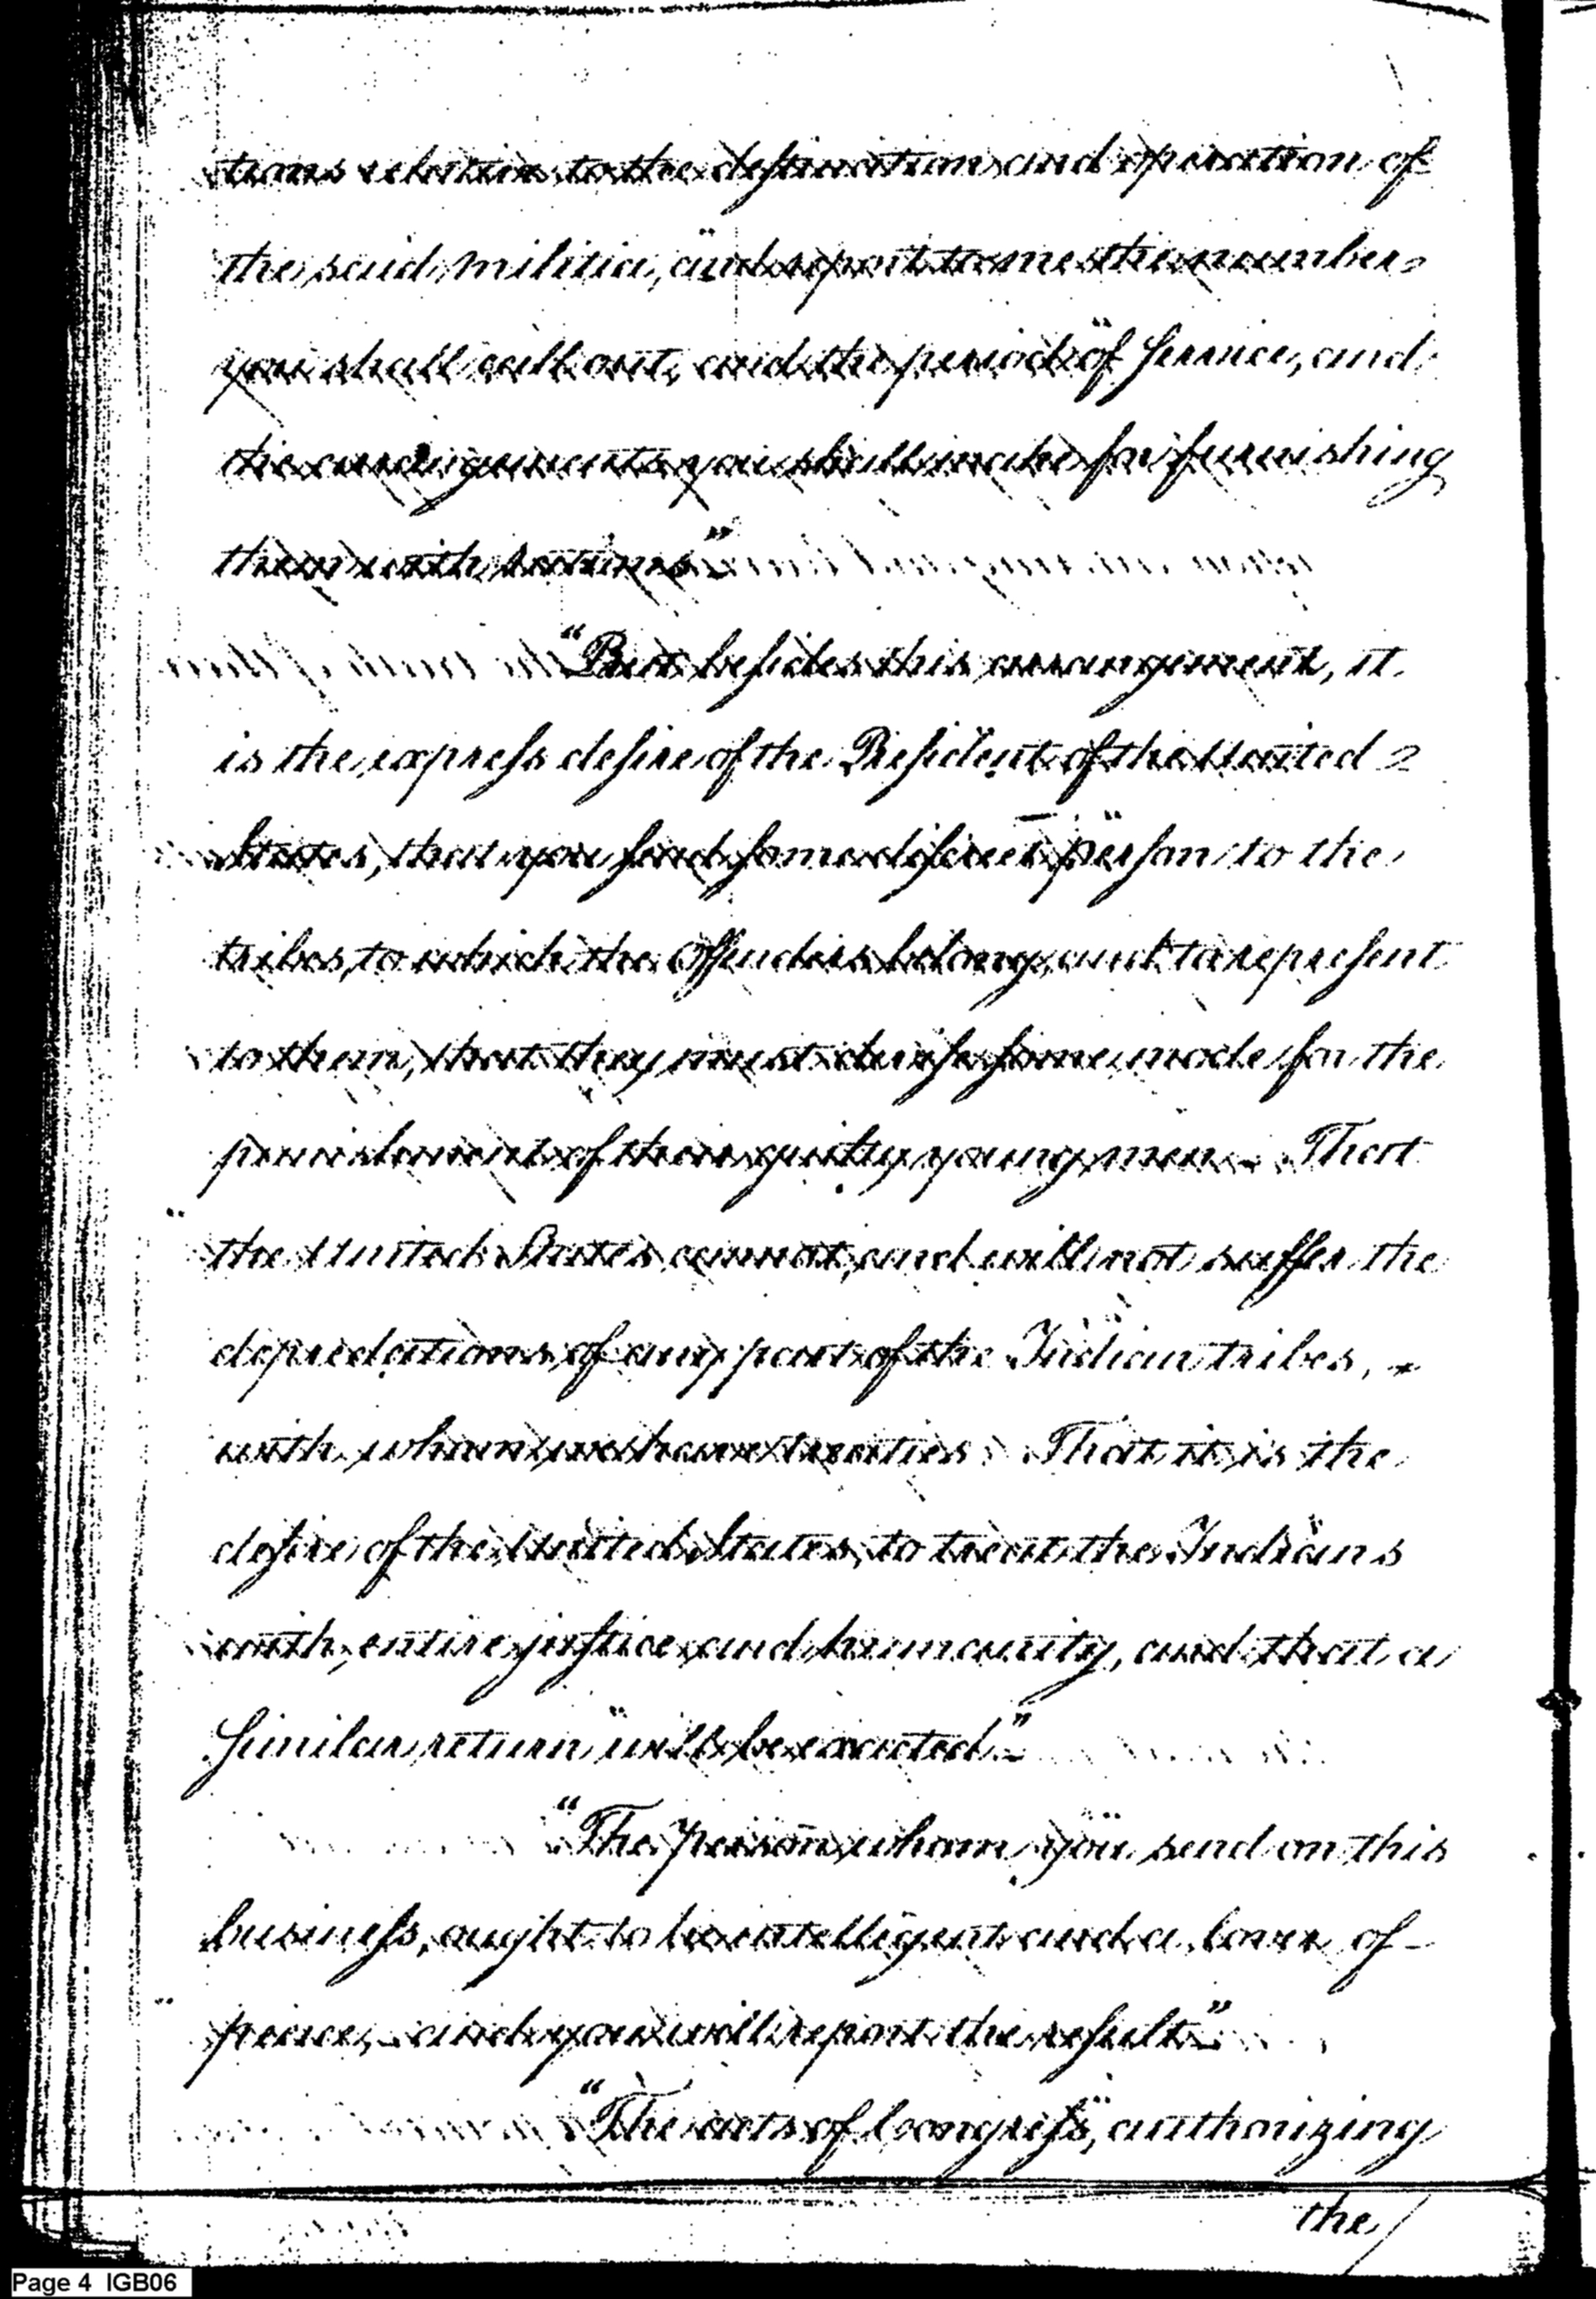 tions relative to the destination and operation of
the said militia, and report to me the number
you shall call out, and the period of service, and
the arrangements you shall make for furnishing
them with rations."
"But besides this arrangement, it
is the express desire of the President of the United
States, that you send some discreet person to the
tribes, to which the offenders belong, and to represent
to them, that they must devise some mode for the
punishment of their guilty young men. That
the United States cannot, and will not suffer the
depredations of any part of the Indian tribes,
with whom we have treaties. That it is the
desire of the United States, to treat the Indians
with entire justice and humanity, and that a
similar return will be exacted."
"The person whom you send on this
business, ought to be intelligent and a lover of
peace, and you will report the result."
"The acts of Congress, authorizing
the
Page 4 IGB06